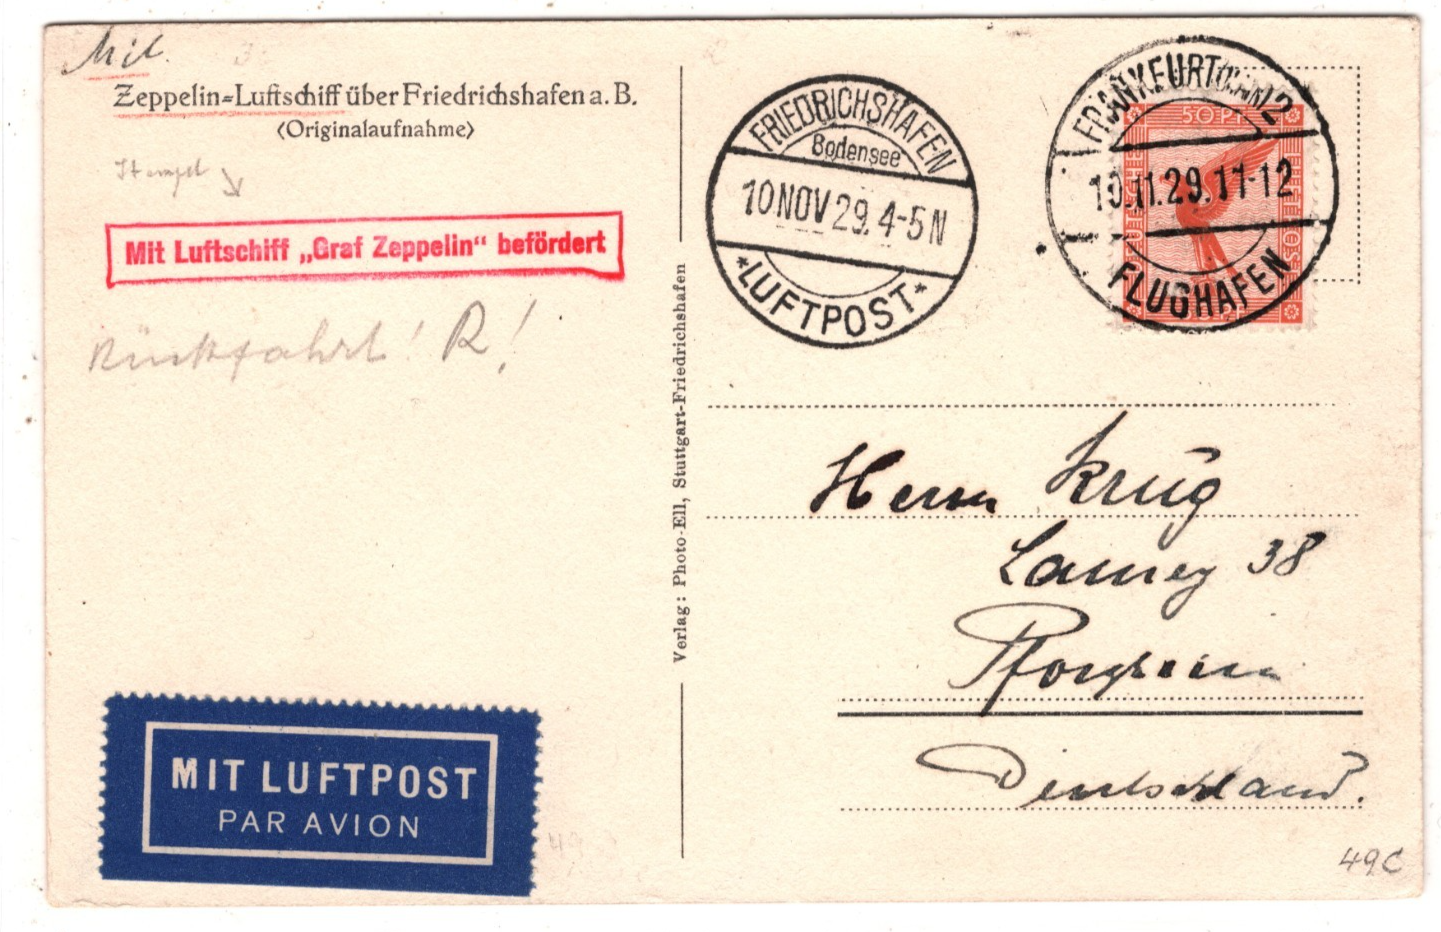 Mit
Zeppelin=Luftschiff über Friedrichshafen a. B.
<Originalaufnahme>
Stempel
Mit Luftschiff „Graf Zeppelin“ befördert
Rückfahrt! R!
MIT LUFTPOST
PAR AVION
Verlag: Photo-Ell, Stuttgart-Friedrichshafen
FRIEDRICHSHAFEN
Bodensee
10 NOV 29. 4-5 N
*LUFTPOST*
FRANKFURT (MAIN) 2
50 PF
10.11.29. 11-12
FLUGHAFEN
Herrn Krug
Lamey 38
Pforzheim
Deutschland.
49C